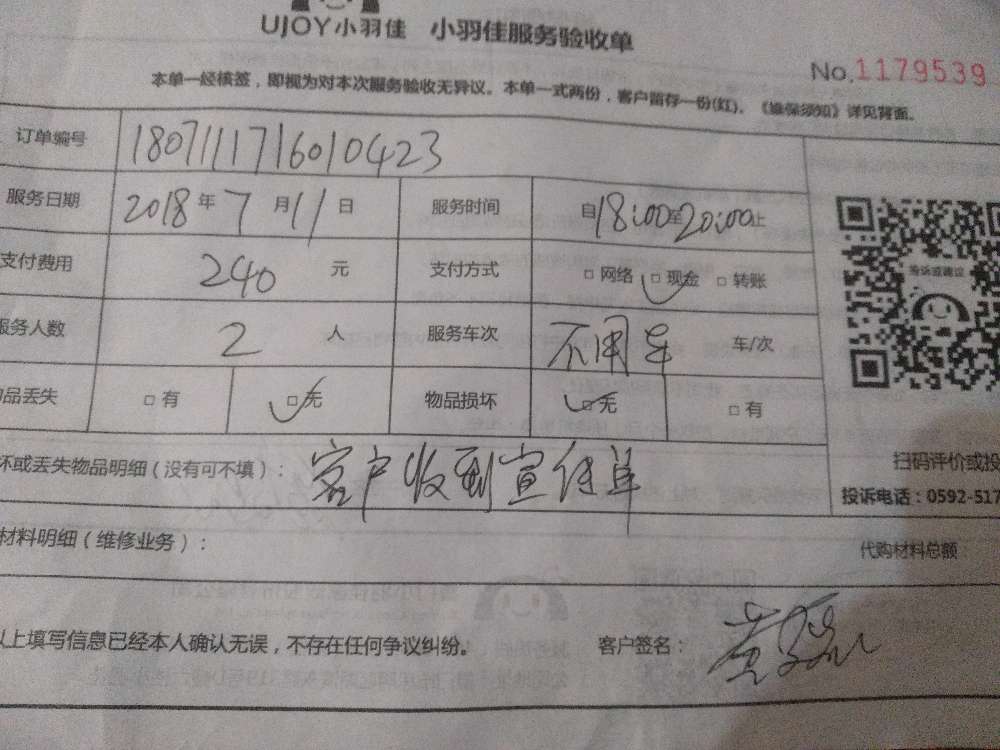 UJOY小羽佳 小羽佳服务验收单
No.1179539
本单一经核签，即视为对本次服务验收无异议。本单一式两份，客户留存一份(红)。《维保须知》详见背面。
订单编号 1807111716010423
服务日期 2018年7月11日 服务时间 自18:00至20:00止
支付费用 240 元 支付方式 □网络 □现金 □转账
投诉或建议
服务人数 2 人 服务车次 不用车 车/次
品丢失 □有 □无 物品损坏 □无 □有
坏或丢失物品明细（没有可不填）： 客户收到宣传单
扫码评价或投
投诉电话：0592-517
材料明细（维修业务）： 代购材料总额
以上填写信息已经本人确认无误，不存在任何争议纠纷。 客户签名：